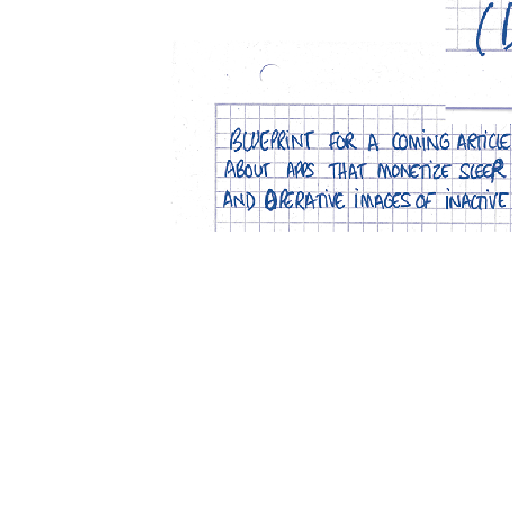 BLUEPRINT FOR A COMING ARTICLE
ABOUT APPS THAT MONETIZE SLEEP
AND OPERATIVE IMAGES OF INACTIVE